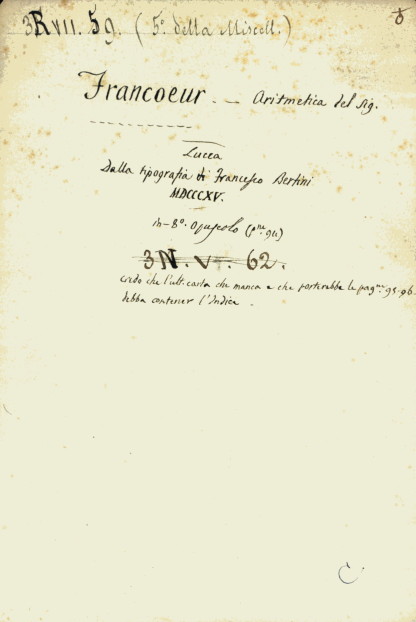 3R VII. 59. (5º della Miscell.)
Francoeur - Aritmetica del sig.
Lucca
Dalla tipografia di Francesco Bertini
MDCCCXV.
in-8º. Opuscolo (pne. 94)
3N. V. 62.
credo che l'ult. carta che manca e che porterebbe le pagne. 95-96.
debba contener l'Indice.